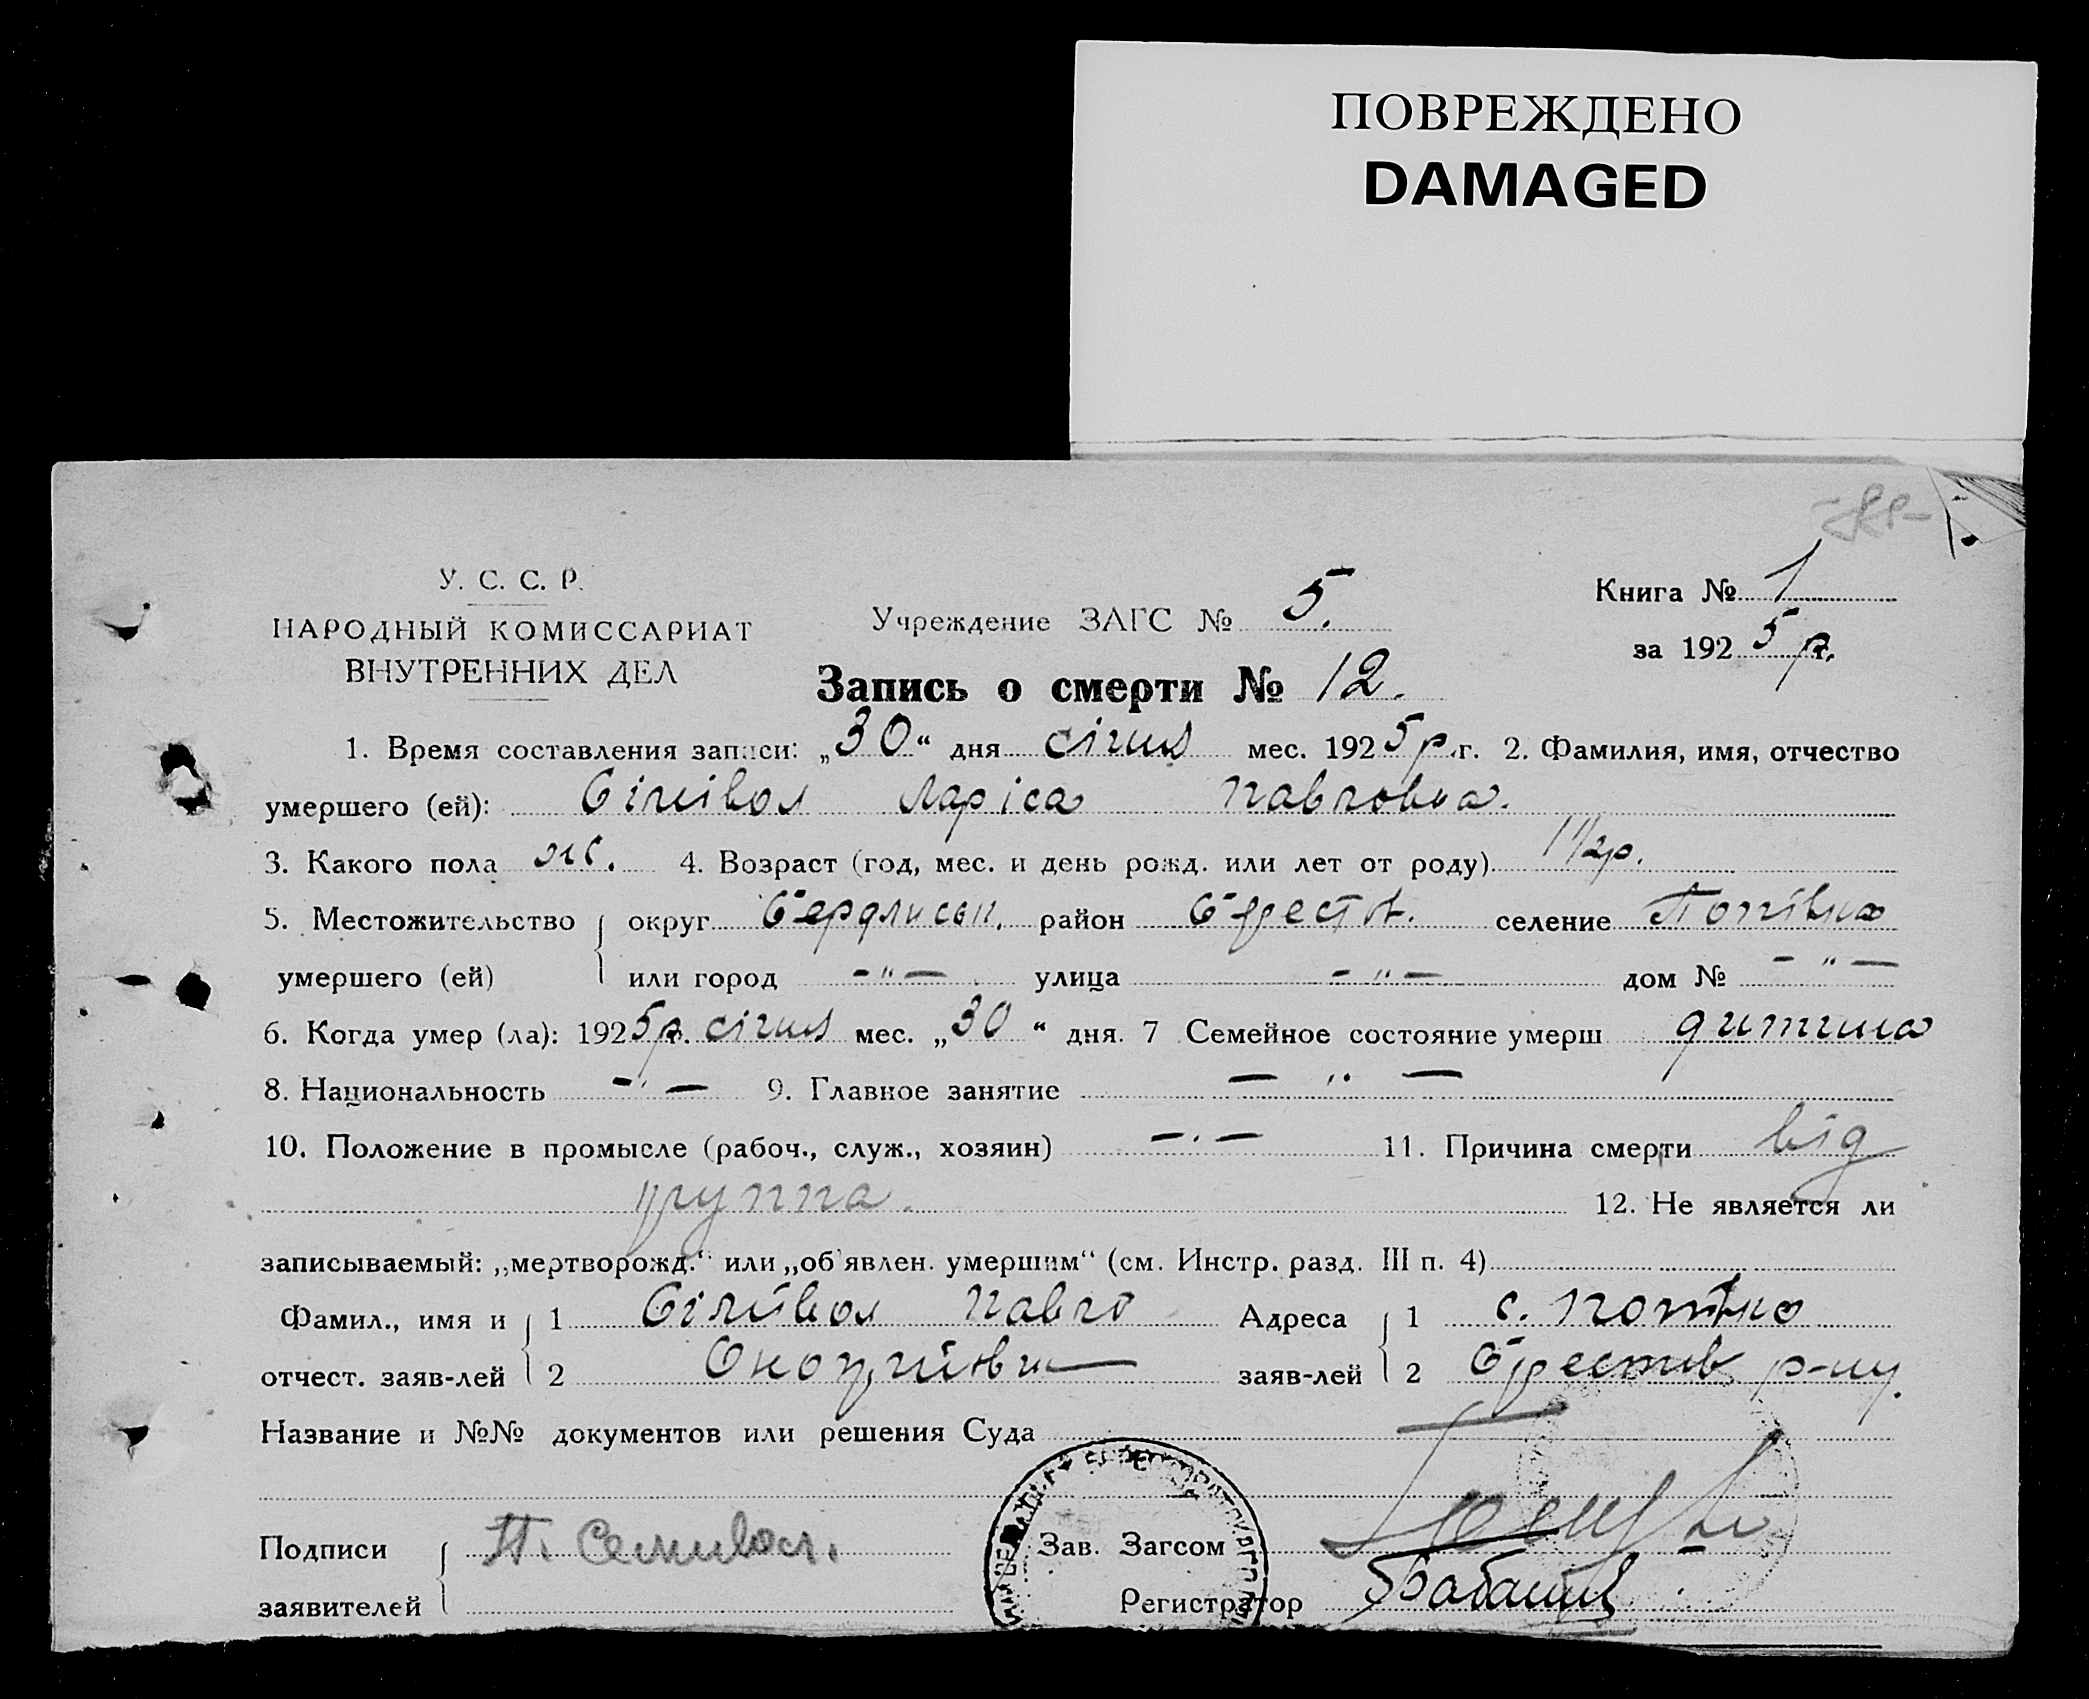 ПОВРЕЖДЕНО
DAMAGED
У. С. С. Р.
НАРОДНЫЙ КОМИССАРИАТ
ВНУТРЕННИХ ДЕЛ
Учреждение ЗАГС № 5.
Книга № 1
за 1925 р.
Запись о смерти № 12.
1. Время составления записи: „30“ дня січня мес. 1925 р. г. 2. Фамилия, имя, отчество
умершего (ей): Лариса Павловна.
3. Какого пола ж. 4. Возраст (год, мес. и день рожд. или лет от роду) 1 1/2 р.
5. Местожительство округ район селение Попівка
умершего (ей) или город -"- улица -"- дом № -"-
6. Когда умер (ла): 1925 р. січня мес. „30“ дня. 7 Семейное состояние умерш дитина
8. Национальность -"- 9. Главное занятие -"-
10. Положение в промысле (рабоч., служ., хозяин) -"- 11. Причина смерти від
группа. 12. Не является ли
записываемый: „мертворожд.“ или „об'явлен. умершим“ (см. Инстр. разд. III п. 4)
Фамил., имя и 1 Павло Адреса 1 с. Попівка
отчест. заяв-лей 2 заяв-лей 2 р-ну.
Название и №№ документов или решения Суда
Подписи П. Зав. Загсом
заявителей Регистратор